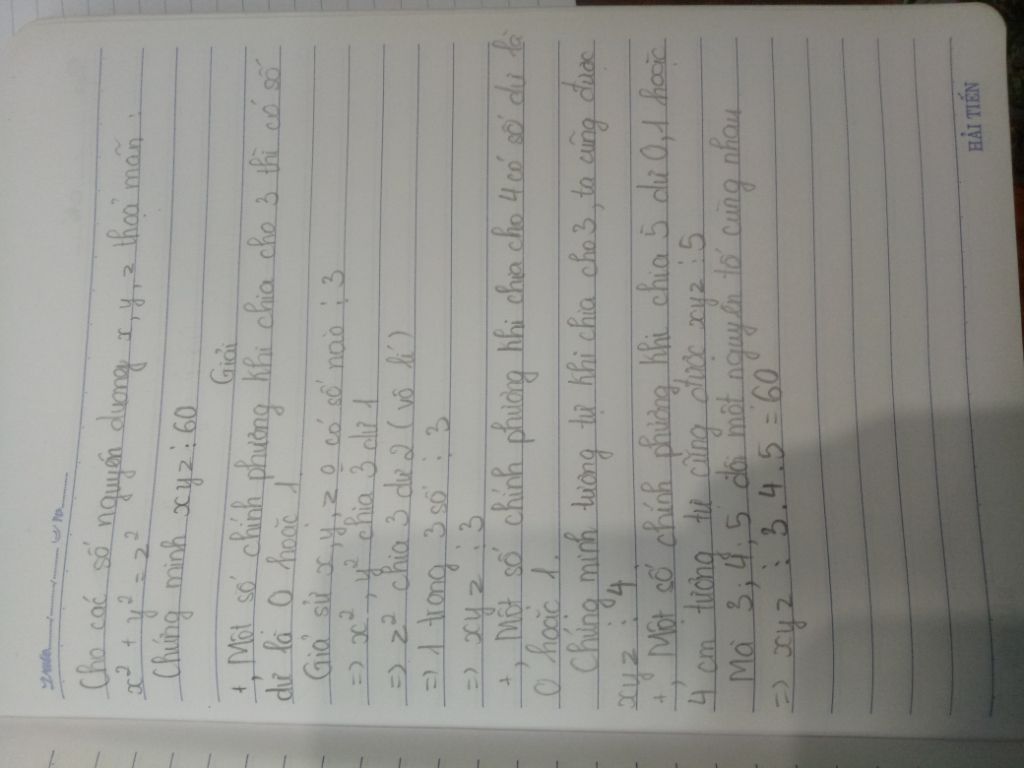 Cho các số nguyên dương x, y, z thoả mãn :
x² + y² = z²
Chứng minh xyz ⋮ 60
Giải
+, Một số chính phương khi chia cho 3 thì có số
dư là 0 hoặc 1
Giả sử x, y, z o có số nào ⋮ 3
=) x², y² chia 3 dư 1
=) z² chia 3 dư 2 (vô lí)
=) 1 trong 3 số ⋮ 3
=) xyz ⋮ 3
+, Một số chính phương khi chia cho 4 có số dư là
0 hoặc 1.
Chứng minh tương tự khi chia cho 3, ta cũng được
xyz ⋮ 4
+, Một số chính phương khi chia 5 dư 0, 1 hoặc
4, cm tương tự cũng được xyz ⋮ 5
Mà 3, 4, 5 đôi một nguyên tố cùng nhau
=) xyz ⋮ 3.4.5 = 60
HẢI TIẾN